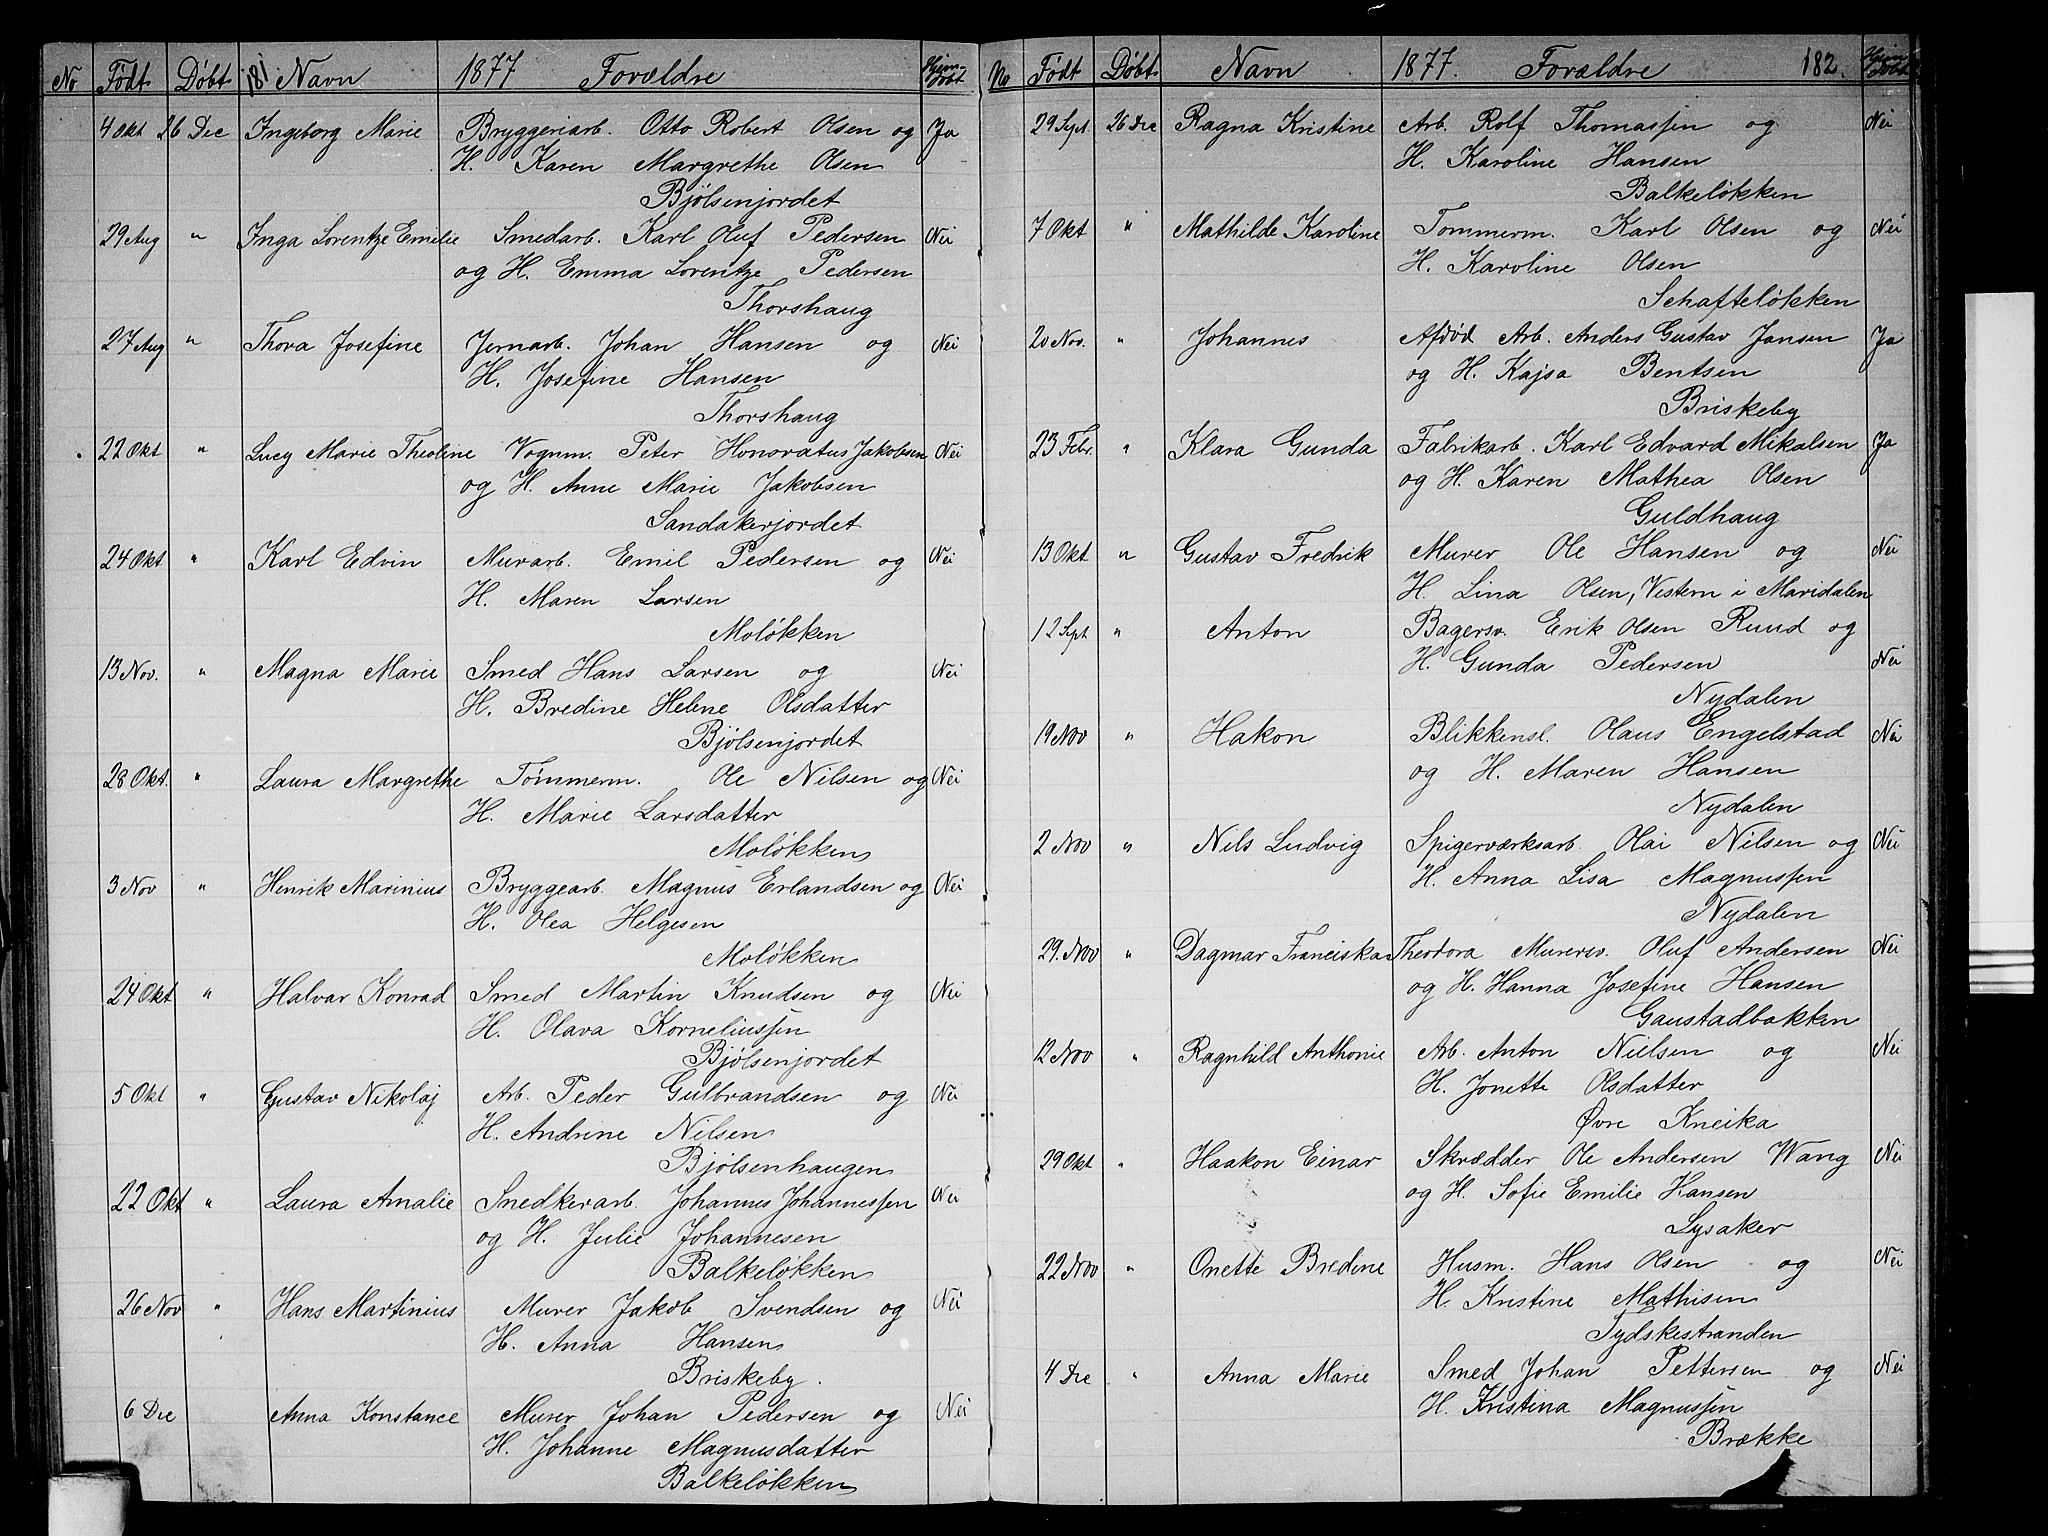 No Født Døbt 181 Navn 1877 Forældre Hjem-døbt
4 Okt 26 Dec Ingeborg Marie Bryggeriarb. Otto Robert Olsen og Ja
H. Karen Margrethe Olsen
Bjølsenjordet
29 Aug " Inga Lorentze Emelie Smedarb. Karl Oluf Pedersen Nei
og H. Emma Lorentze Pedersen
Thorshaug
27 Aug " Thora Josefine Jernarb. Johan Hansen og Nei
H. Josefine Hansen
Thorshaug
22 Okt " Lucy Marie Theoline Vognm. Peter Honoratus Jakobsen Nei
og H. Anne Marie Jakobsen
Sandakerjordet
24 Okt " Karl Edvin Murarb. Emil Pedersen og Nei
H. Maren Larsen
Moløkken
13 Nov. " Magna Marie Smed Hans Larsen og Nei
H. Bredine Helene Olsdatter
Bjølsenjordet
28 Okt. " Laura Margrethe Tømmerm. Ole Nilsen og Nei
H. Marie Larsdatter
Moløkken
3 Nov " Henrik Marinius Bryggearb. Magnus Erlandsen og Nei
H. Olea Helgesen
Moløkken
24 Okt " Halvar Konrad Smed Martin Knudsen og Nei
H. Olava Korneliussen
Bjølsenjordet
5 Okt " Gustav Nikolaj Arb. Peder Gulbrandsen og Nei
H. Andrine Nilsen
Bjølsenhaugen
22 Okt " Laura Amalie Snedkerarb. Johannes Johannessen Nei
og H. Julie Johannesen
Balkeløkken
26 Nov " Hans Martinius Murer Jakob Svendsen og Nei
H. Anna Hansen
Briskeby.
6 Dec Anna Konstance Murer Johan Pedersen og Nei
H. Johanne Magnusdatter
Balkeløkken
No Født Døbt Navn 1877. Forældre 182. Hjem-døbt
29 Sept. 26 Dec Ragna Kristine Arb. Rolf Thomassen og Nei
H. Karoline Hansen
Balkeløkken
7 Okt " Mathilde Karoline Tommerm. Karl Olsen og Nei
H. Karoline Olsen
Schafteløkken
20 Nov. " Johannes Afdød Arb. Anders Gustav Jansen Ja
og H. Kajsa Bentsen
Briskeby
23 Febr. " Klara Gunda Fabrikarb. Karl Edvard Mikalsen Ja
og H. Karen Mathea Olsen
Guldhaug
13 Okt " Gustav Fredrik Murer Ole Hansen og Nei
H. Lina Olsen, Vestern i Maridalen
12 Sept " Anton Bagersv. Erik Olsen Ruud og
H. Gunda Pedersen Nei
Nydalen
19 Nov " Hakon Blikkensl. Olaus Engelstad Nei
og H. Maren Hansen
Nydalen
2 Nov " Nils Ludvig Spigerværksarb. Olai Nilsen og Nei
H. Anna Lisa Magnussen
Nydalen
29. Nov " Dagmar Franciska Theodora Murersv. Oluf Andersen Nei
og H. Hanna Josefine Hansen
Gaustadbakken
12 Nov " Ragnhild Anthonie Arb. Anton Nielsen og Nei
H. Jonette Olsdatter
Øvre Kneika
29 Okt " Haakon Einar Skrædder Ole Andersen Wang Nei
og H. Sofie Emilie Hansen
Lysaker
22 Nov " Onette Bredine Husm. Hans Olsen og Nei
H. Kristine Mathisen
Tydskestranden
4 Dec " Anna Marie Smed Johan Pettersen og Nei
H. Kristina Magnussen
Brække